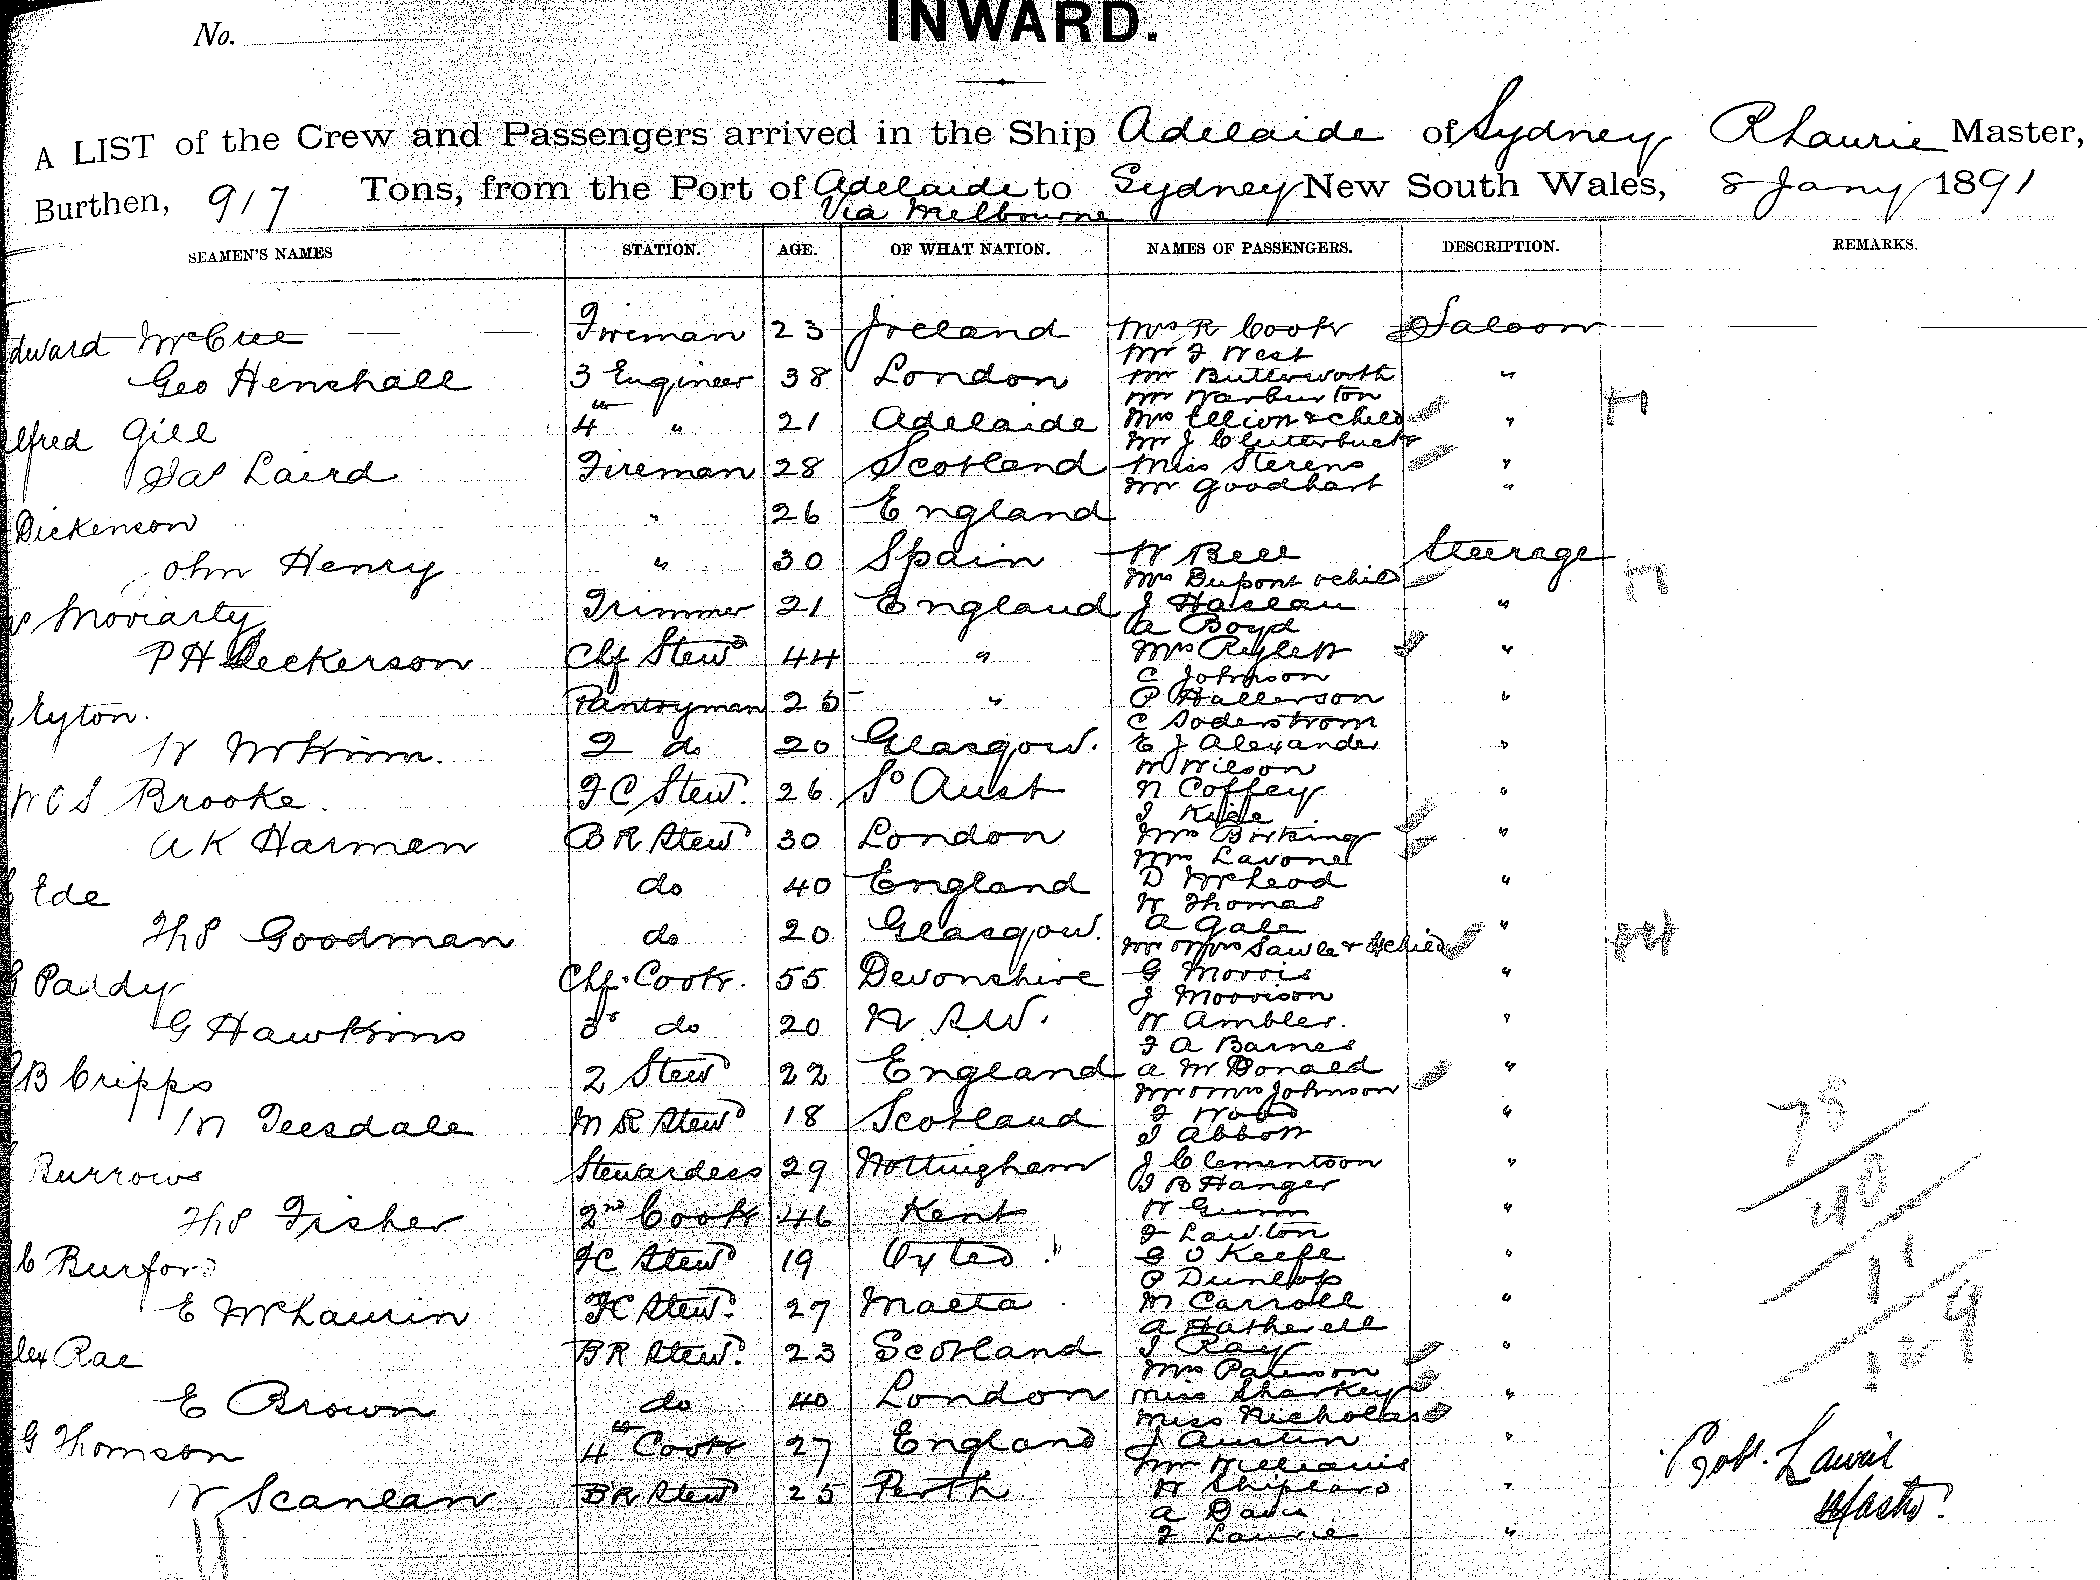 INWARD.
No.
A LIST of the Crew and Passengers arrived in the Ship Adelaide of Sydney R Laurie Master,
Burthen, 917 Tons, from the Port of Adelaide to Sydney New South Wales, 8 Jany 1891
Via Melbourne
SEAMEN'S NAMES STATION. AGE. OF WHAT NATION. NAMES OF PASSENGERS. DESCRIPTION. REMARKS.
dward McCree Fireman 23 Ireland Mrs R Cook Saloon
Mr J West
Geo Henshall 3 Engineer 38 London Mr Butterworth "
Mr Warburton
lfred Gill 4th " 21 Adelaide Mrs Ellion & Child "
Mr J Clutterbuck
Jas Laird Fireman 28 Scotland Miss Sterens "
Mr Goodhart "
Dickenson " 26 England
ohn Henry " 30 Spain W Bell Steerage
Mrs Dupont & child
Moriarty Trimmer 21 England J Haslam "
A Boyd
P H Deckerson Chf Stewd 44 " Mrs "
C Johnson
Eyton. Pantryman 25 " P Hallerson "
C Soderstrom
W McKinn. 2 do 20 Glasgow. E J Alexander "
W Wilson
W C S Brooke. F C Stewd. 26 So Aust N Coffey "
J
A K Harmen B R Stewd 30 London Mrs "
Mrs Lavone
Ede do 40 England D McLeod "
W Thomas
Ths Goodman do 20 Glasgow. A Gale "
Mr & Mrs Sawle & child
G Paddy Chf. Cook. 55 Devonshire G Morris "
J Morrison
G Hawkins 3r do 20 N S W. W Ambler. "
F A Barnes
B Cripps 2 Stewd 22 England A McDonald "
Mr & Mrs Johnson
W Teesdale M R Stewd 18 Scotland J Wood "
J Abbott
Burrows Stewardess 29 Nottingham J Clementson "
J B Hanger
Ths Fisher 2nd Cook 46 Kent W Gunn "
J Lawton
C Burford F C Stewd 19 O'Keefe "
P Dunlop
E McLaurin F C Stewd. 27 Malta M Carroll "
A Hatherell
lex Rae B R Stewd. 23 Scotland J Ray "
Mrs Paterson
E Brown do 40 London Miss Sharkey "
Miss Nicholas
G Thomson 4th Cook 27 England J Austin "
Mr Williams
W Scanlan B R Stewd 25 Perth "
A Davis
J Laurie "
78
40
11
129
Robt. Laurie
Master.